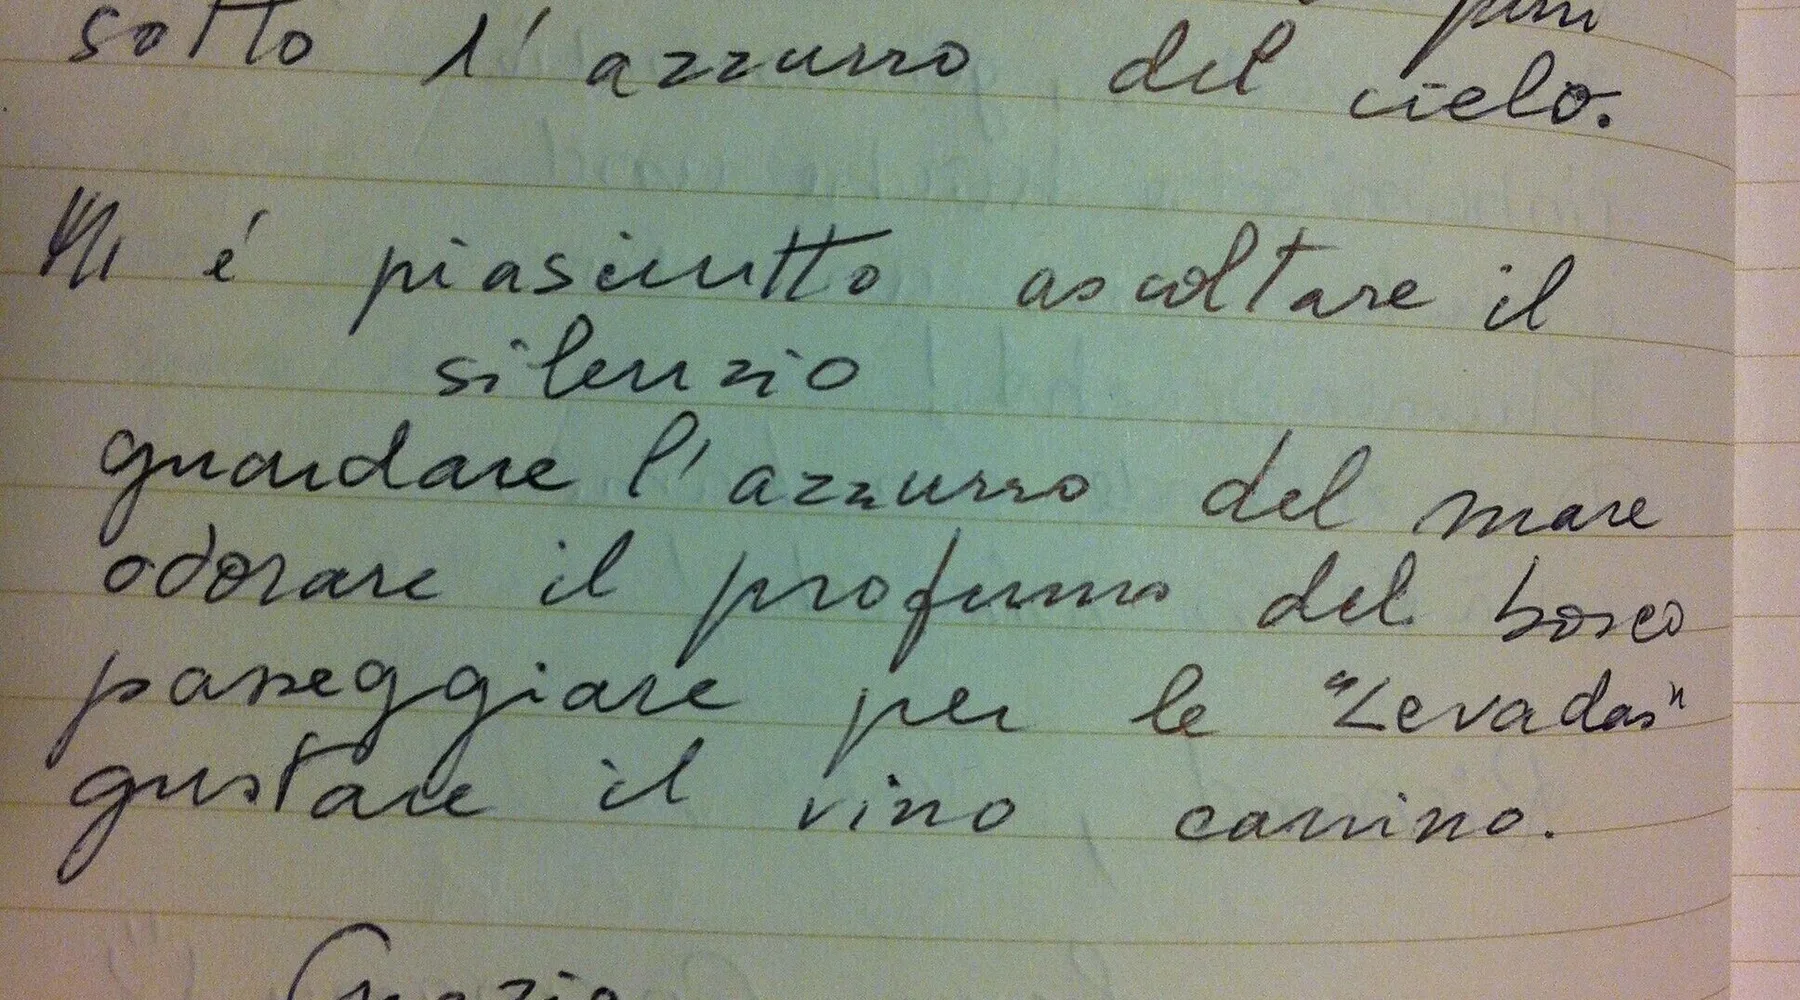 sotto l'azzurro del cielo.
Mi é piasciutto ascoltare il
silenzio
guardare l'azzurro del mare
odorare il profumo del bosco
passeggiare per le "Levadas"
gustare il vino
Grazie